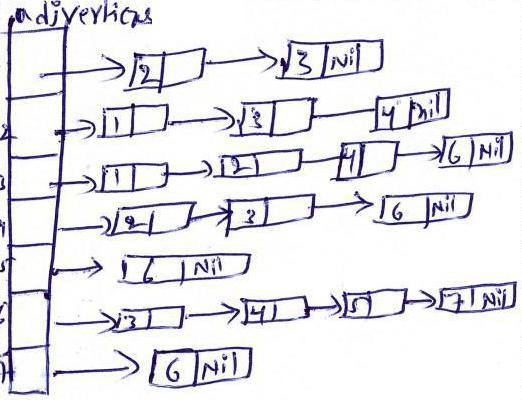 adjvertices
2 3 Nil
2 1 3 4 Nil
3 1 2 4 6 Nil
4 2 3 6 Nil
5 6 Nil
6 3 4 5 7 Nil
6 Nil